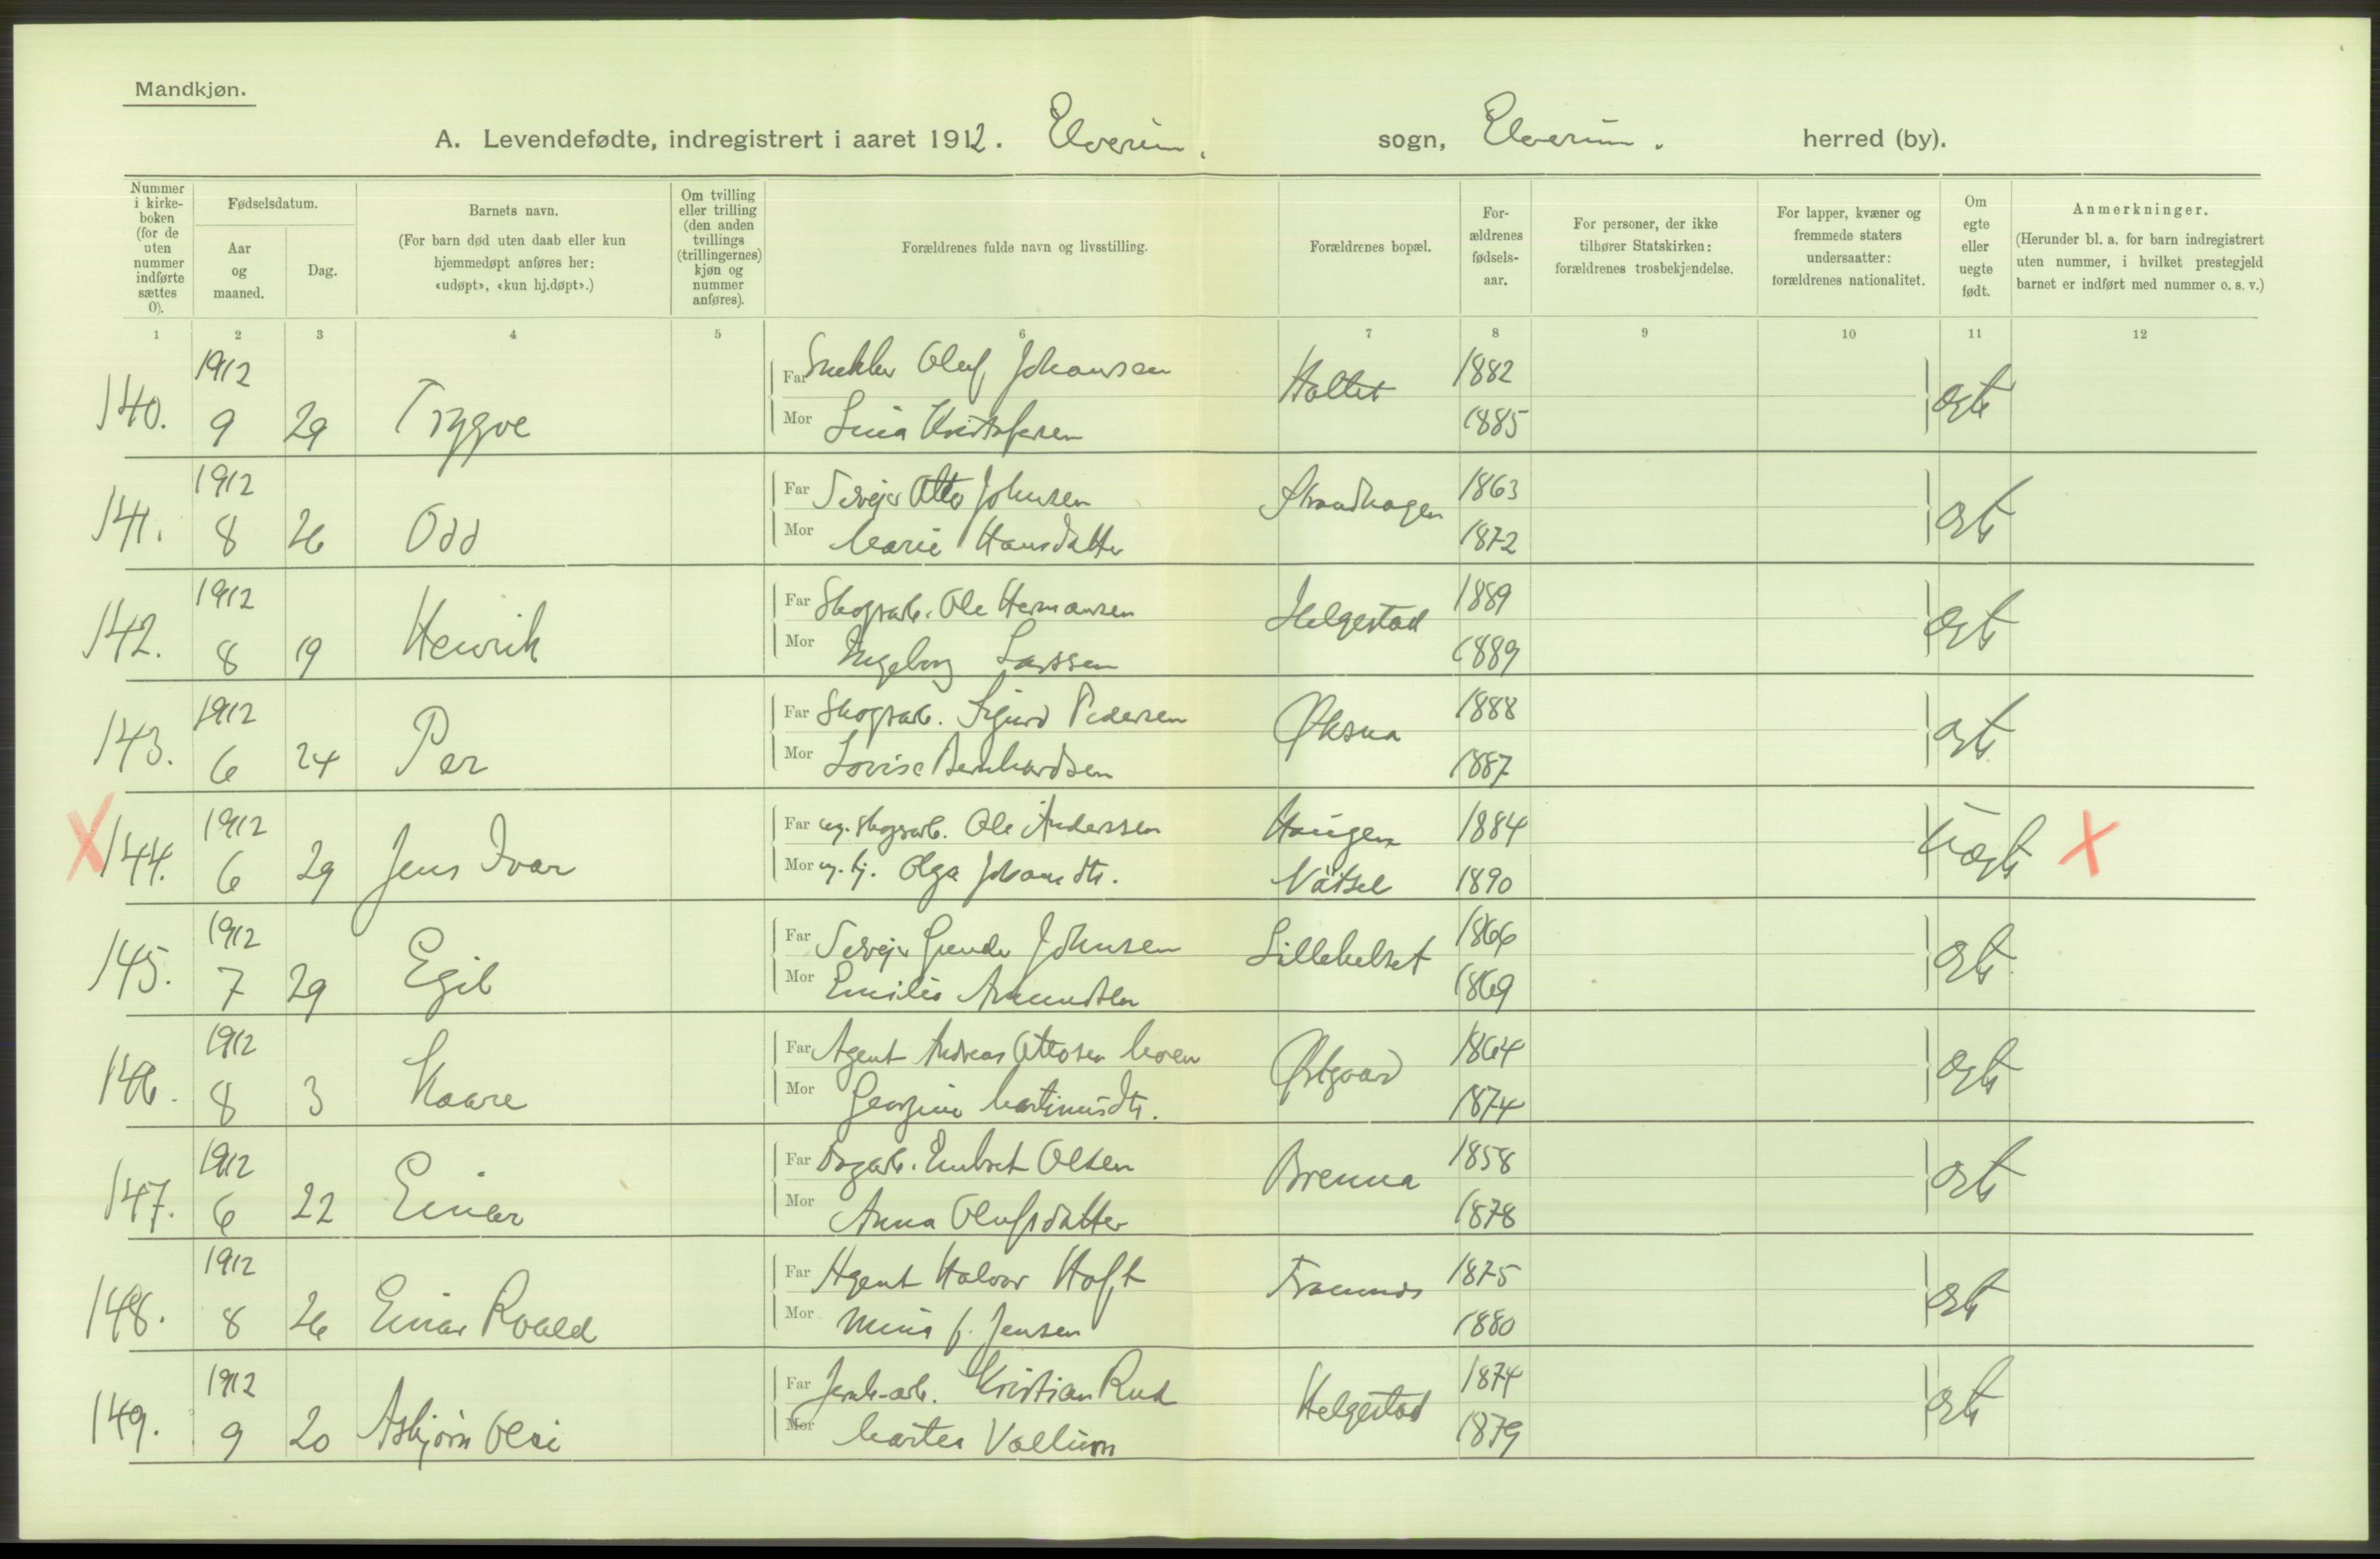 Mandkjøn.
A. Levendefødte, indregistrert i aaret 1912. Elverum. sogn, Elverum. herred (by).
Nummer i kirke-boken (for de uten nummer indførte sættes 0).
Fødselsdatum.
Aar og maaned.
Dag.
Barnets navn.
(For barn død uten daab eller kun hjemmedøpt anføres her: «udøpt», «kun hj.døpt».)
Om tvilling eller trilling (den anden tvillings (trillingernes) kjøn og nummer anføres).
Forældrenes fulde navn og livsstilling.
Forældrenes bopæl.
For-ældrenes fødsels-aar.
For personer, der ikke tilhører Statskirken: forældrenes trosbekjendelse.
For lapper, kvæner og fremmede staters undersaatter: forældrenes nationalitet.
Om egte eller uegte født.
Anmerkninger.
(Herunder bl. a. for barn indregistrert uten nummer, i hvilket prestegjeld barnet er indført med nummer o. s. v.)
1 2 3 4 5 6 7 8 9 10 11 12
1912 Far Snekker Oluf Johansen Holtet 1882
140. 9 29 Trygve Mor Lina Kristofersen 1885 ægte
1912 Far Selvejer Otto Johnsen Strandhagen 1863
141. 8 26 Odd Mor Marie Hansdatter 1872 ægte
1912 Far Skogsarb. Ole Hermansen Helgestad 1889
142. 8 19 Henrik Mor Ingeborg Larssen 1889 ægte
1912 Far Skogsarb. Sigurd Pedersen Øksna 1888
143. 6 24 Per Mor Lovise Bernhardsen 1887 ægte
X 1912 Far ug. skogsarb. Ole Anderssen Haugen 1884
144. 6 29 Jens Ivar Mor ug. tj. Olga Johansdtr. Nätsel 1890 uægte X
1912 Far Selvejer Gunder Johnsen Lillekelset 1866
145. 7 29 Egil Mor Emilie Amundsen 1869 ægte
1912 Far Agent Andreas Ottosen Moen Østgaard 1864
146. 8 3 Kaare Mor Georgine Martinusdtr. 1874 ægte
1912 Far Dagarb. Embret Olsen Brenna 1858
147. 6 22 Einar Mor Anna Olufsdatter 1878 ægte
1912 Far Agent Halvor Hoft 1875
148. 8 26 Einar Roald Mor Mina f. Jensen 1880 ægte
1912 Far Jernb.-arb. Kristian Rud Helgestad 1874
149. 9 20 Asbjørn Olai Mor Martea Vallum 1879 ægte